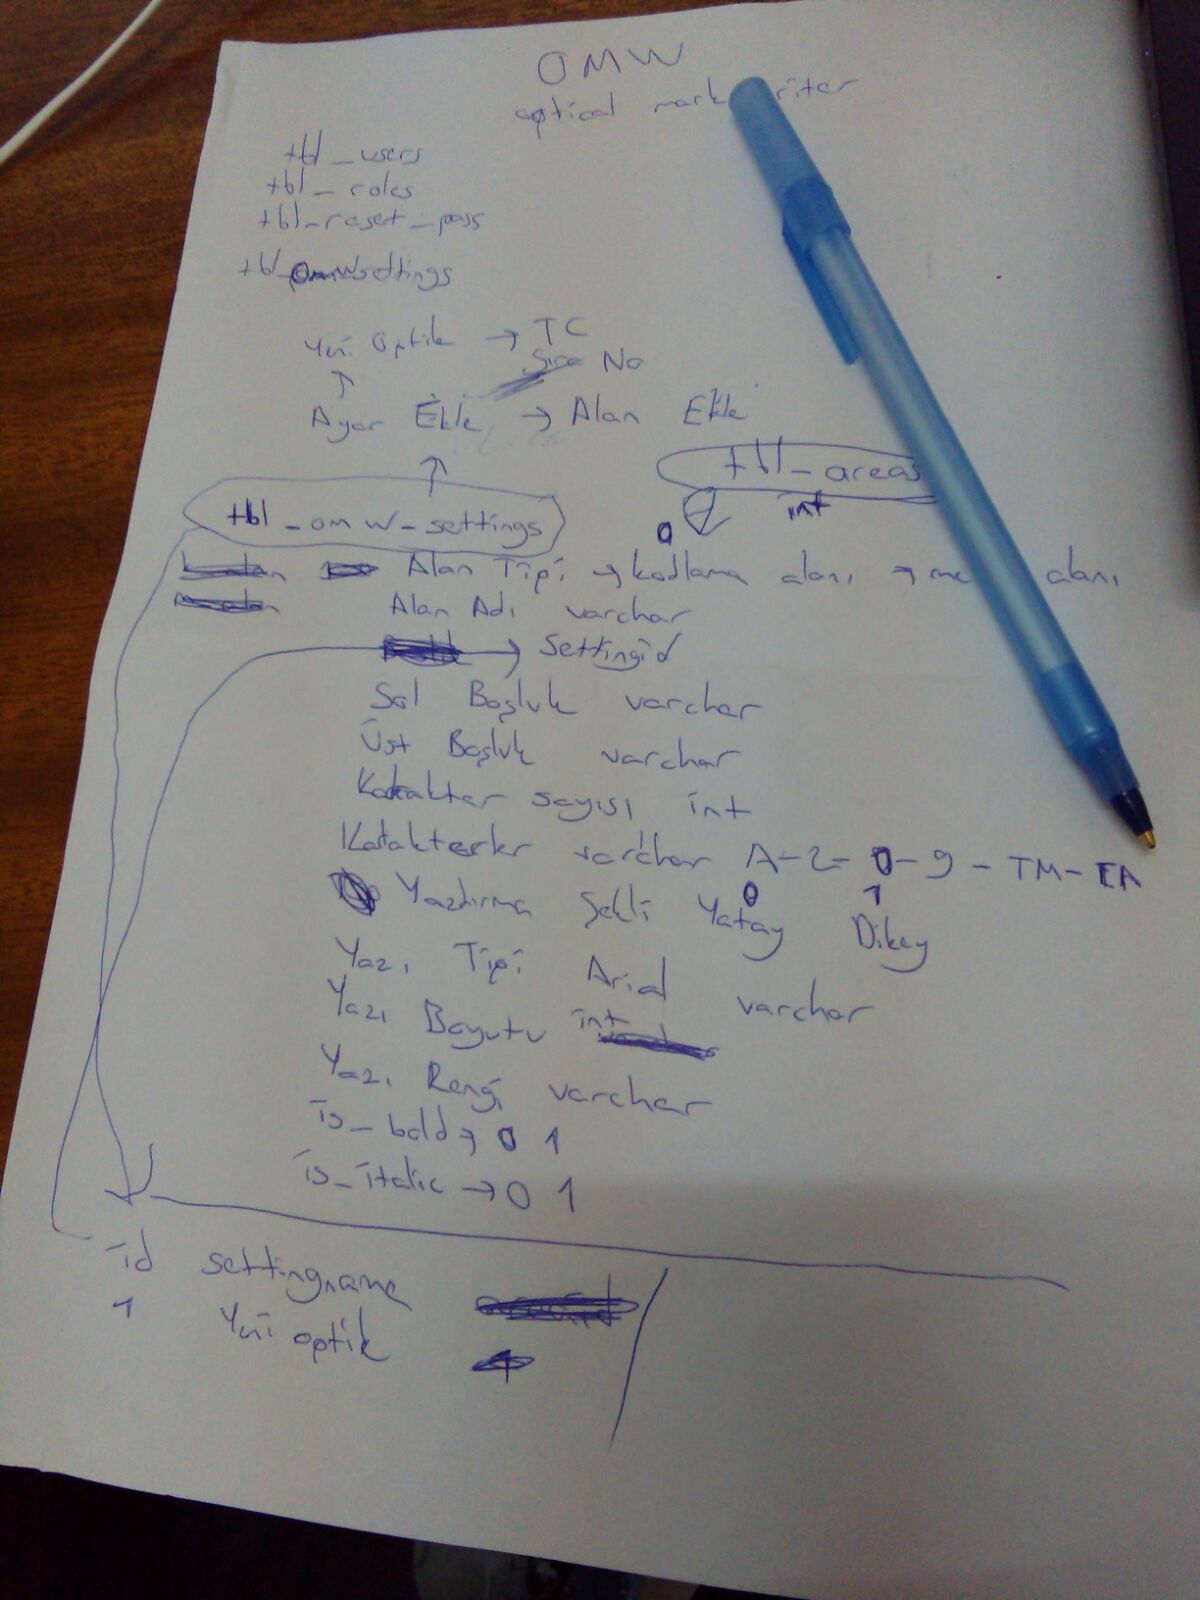 OMW
optical mark riter
tbl_users
tbl_roles
tbl_reset_pass
tbl_omwsettings
Yeni Optik → TC
Sıra No
↑
Ayar Ekle → Alan Ekle
↑
tbl_areas
tbl_omw_settings
int
0
Alan Tipi → kodlama alanı → me alanı
Alan Adı varchar
→ Settingid
Sol Boşluk varchar
Üst Boşluk varchar
Karakter sayısı int
Karakterler varchar A-Z- 0-9 - TM-EA
0 1
Yazdırma Şekli Yatay Dikey
Yazı Tipi Arial varchar
Yazı Boyutu int
Yazı Rengi varchar
is_bold → 0 1
is_italic → 0 1
id settingname
1 Yeni optik